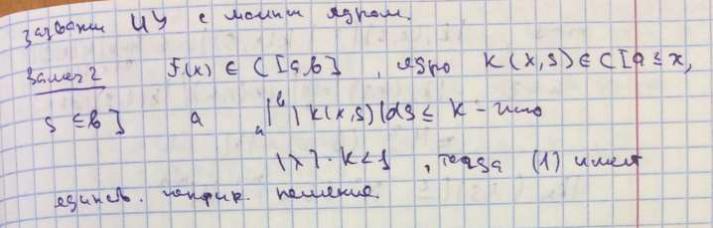 назвали ИУ с малым ядром.
Замеч 2 F(x) ∈ C[a,b], ядро K(x,s) ∈ C[a ≤ x,
s ≤ b] a ∫ₐᵇ |K(x,s)|ds ≤ K -
|λ|·K < 1, тогда (1) имеет
единств. непрер. решение.